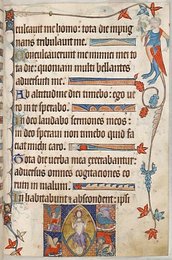 culcauit me homo: tota die inpug
nans tribulauit me.
Conculcauerunt me inimici mei to
ta die: quoniam multi bellantes
aduersum me.
Ab altitudine diei timebo: ego ue
ro in te sperabo.
In deo laudabo sermones meos:
in deo speraui non timebo quid fa
ciat michi caro.
Tota die uerba mea execrabantur:
aduersus omnes cogitationes eo
rum in malum.
Inhabitabunt et abscondent: ipsi